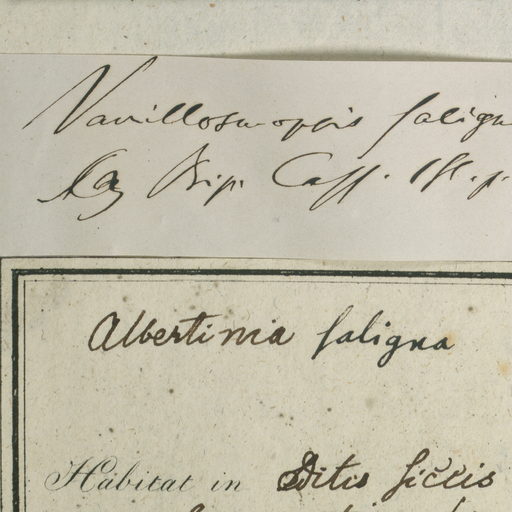 Vanillosmopsis salign
Bip. Cass.
Albertinia saligna
Habitat in Ditis siccis